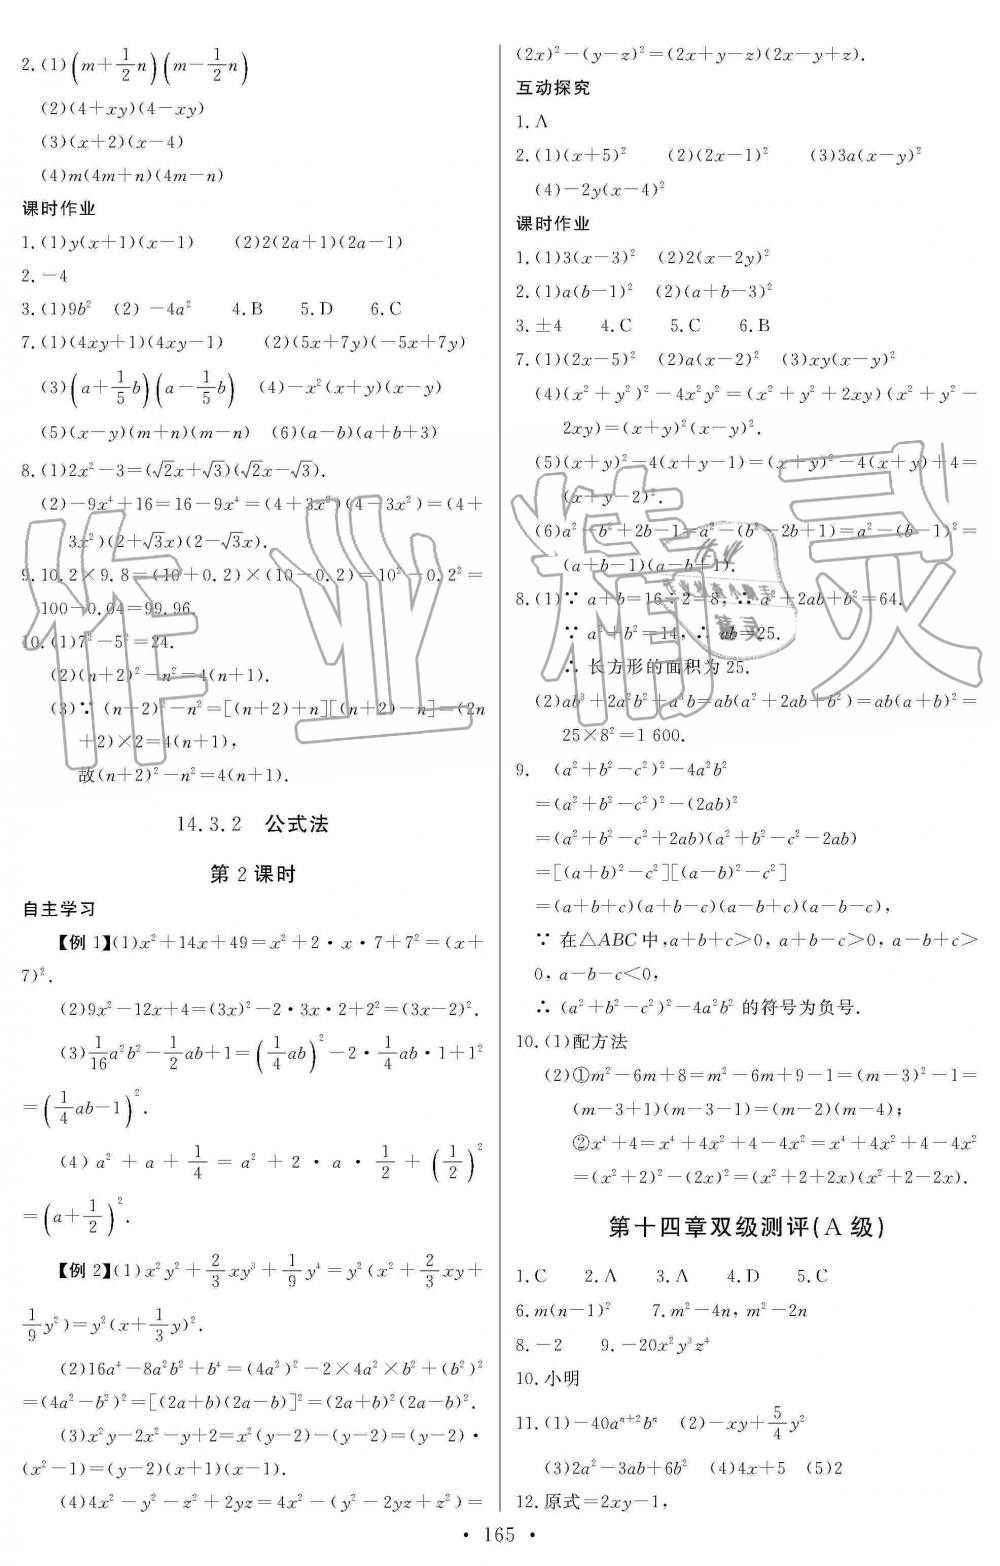 2.(1)(m+1/2n)(m-1/2n)
(2)(4+xy)(4-xy)
(3)(x+2)(x-4)
(4)m(4m+n)(4m-n)
课时作业
1.(1)y(x+1)(x-1) (2)2(2a+1)(2a-1)
2.-4
3.(1)9b² (2)-4a² 4.B 5.D 6.C
7.(1)(4xy+1)(4xy-1) (2)(5x+7y)(-5x+7y)
(3)(a+1/5b)(a-1/5b) (4)-x²(x+y)(x-y)
(5)(x-y)(m+n)(m-n) (6)(a-b)(a+b+3)
8.(1)2x²-3=(√2x+√3)(√2x-√3).
(2)-9x⁴+16=16-9x⁴=(4+3x²)(4-3x²)=(4+
3x²)(2+√3x)(2-√3x).
9.10.2×9.8=(10+0.2)×(10-0.2)=10²-0.2²=
100-0.04=99.96.
10.(1)7²-5²=24.
(2)(n+2)²-n²=4(n+1).
(3)∵(n+2)²-n²=[(n+2)+n][(n+2)-n]=(2n
+2)×2=4(n+1),
故(n+2)²-n²=4(n+1).
14.3.2 公式法
第2课时
自主学习
【例1】(1)x²+14x+49=x²+2·x·7+7²=(x+
7)².
(2)9x²-12x+4=(3x)²-2·3x·2+2²=(3x-2)².
(3)1/16a²b²-1/2ab+1=(1/4ab)²-2·1/4ab·1+1²
=(1/4ab-1)².
(4)a²+a+1/4=a²+2·a·1/2+(1/2)²
=(a+1/2)².
【例2】(1)x²y²+2/3xy³+1/9y⁴=y²(x²+2/3xy+
1/9y²)=y²(x+1/3y)².
(2)16a⁴-8a²b²+b⁴=(4a²)²-2×4a²×b²+(b²)²
=(4a²-b²)²=[(2a+b)(2a-b)]²=(2a+b)²(2a-b)².
(3)x²y-2x²-y+2=x²(y-2)-(y-2)=(y-2)·
(x²-1)=(y-2)(x+1)(x-1).
(4)4x²-y²-z²+2yz=4x²-(y²-2yz+z²)=
(2x)²-(y-z)²=(2x+y-z)(2x-y+z).
互动探究
1.A
2.(1)(x+5)² (2)(2x-1)² (3)3a(x-y)²
(4)-2y(x-4)²
课时作业
1.(1)3(x-3)² (2)2(x-2y)²
2.(1)a(b-1)² (2)(a+b-3)²
3.±4 4.C 5.C 6.B
7.(1)(2x-5)² (2)a(x-2)² (3)xy(x-y)²
(4)(x²+y²)²-4x²y²=(x²+y²+2xy)(x²+y²-
2xy)=(x+y)²(x-y)².
(5)(x+y)²-4(x+y-1)=(x+y)²-4(x+y)+4=
(x+y-2)².
(6)a²-b²+2b-1=a²-(b²-2b+1)=a²-(b-1)²=
(a+b-1)(a-b+1).
8.(1)∵a+b=16÷2=8,∴a²+2ab+b²=64.
∵a²+b²=14,∴ab=25.
∴长方形的面积为25.
(2)ab³+2a²b²+a³b=ab(a²+2ab+b²)=ab(a+b)²=
25×8²=1 600.
9. (a²+b²-c²)²-4a²b²
=(a²+b²-c²)²-(2ab)²
=(a²+b²-c²+2ab)(a²+b²-c²-2ab)
=[(a+b)²-c²][(a-b)²-c²]
=(a+b+c)(a+b-c)(a-b+c)(a-b-c),
∵在△ABC中,a+b+c>0,a+b-c>0,a-b+c>
0,a-b-c<0,
∴(a²+b²-c²)²-4a²b²的符号为负号.
10.(1)配方法
(2)①m²-6m+8=m²-6m+9-1=(m-3)²-1=
(m-3+1)(m-3-1)=(m-2)(m-4);
②x⁴+4=x⁴+4x²+4-4x²=x⁴+4x²+4-4x²
=(x²+2)²-(2x)²=(x²+2+2x)(x²+2-2x).
第十四章双级测评(A级)
1.C 2.A 3.A 4.D 5.C
6.m(n-1)² 7.m²-4n,m²-2n
8.-2 9.-20x²y³z⁴
10.小明
11.(1)-40aⁿ⁺²bⁿ (2)-xy+5/4y²
(3)2a²-3ab+6b² (4)4x+5 (5)2
12.原式=2xy-1,
·165·
作业精灵